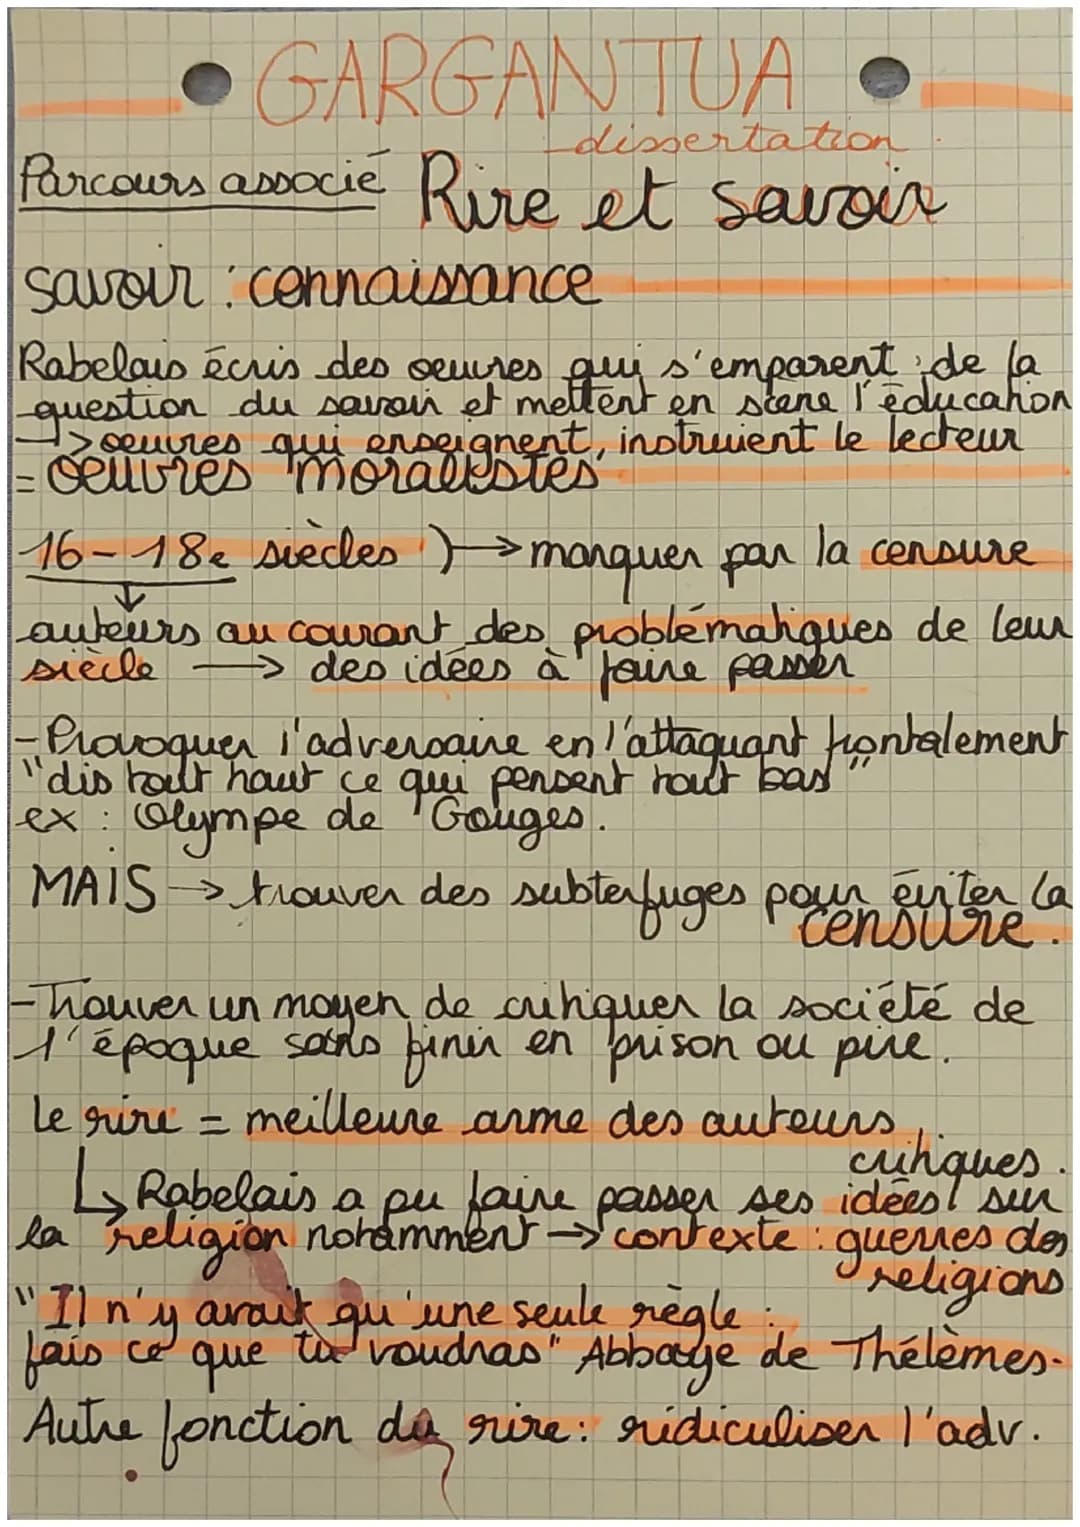 GARGANTUA
dissertation.
Parcours associé Rire et savoir
savoir : connaissance
Rabelais écris des oeuvres qui s'emparent de la
question du savoir et mettent en scène l'éducation
-> oeuvres qui enseignent, instruient le lecteur
= oeuvres moralistes
16-18e siècles ) → marquer par la censure
↓
auteurs au courant des problématiques de leur
siècle → des idées à faire passer
- Provoquer l'adversaire en l'attaquant frontalement
"dis tout haut ce qui pensent tout bas"
ex : Olympe de Gouges.
MAIS → trouver des subterfuges pour éviter la
censure.
- Trouver un moyen de critiquer la société de
l'époque sans finir en prison ou pire.
Le rire = meilleure arme des auteurs
critiques.
↳ Rabelais a pu faire passer ses idées sur
la religion notamment → contexte : guerres des
religions
"Il n'y avait qu'une seule règle :
fais ce que tu voudras" Abbaye de Thélèmes.
Autre fonction du rire : ridiculiser l'adv.